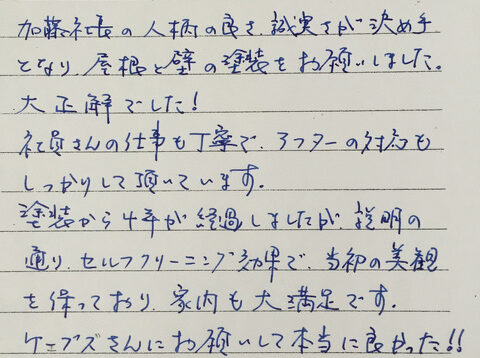 加藤社長の人柄の良さ、誠実さが決め手
となり、屋根と壁の塗装をお願いしました。
大正解でした!
社員さんの仕事も丁寧で、アフターの対応も
しっかりして頂いています。
塗装から4年が経過しましたが、説明の
通り、セルフクリーニング効果で、当初の美観
を保っており、家内も大満足です。
ケーブズさんにお願いして本当に良かった!!